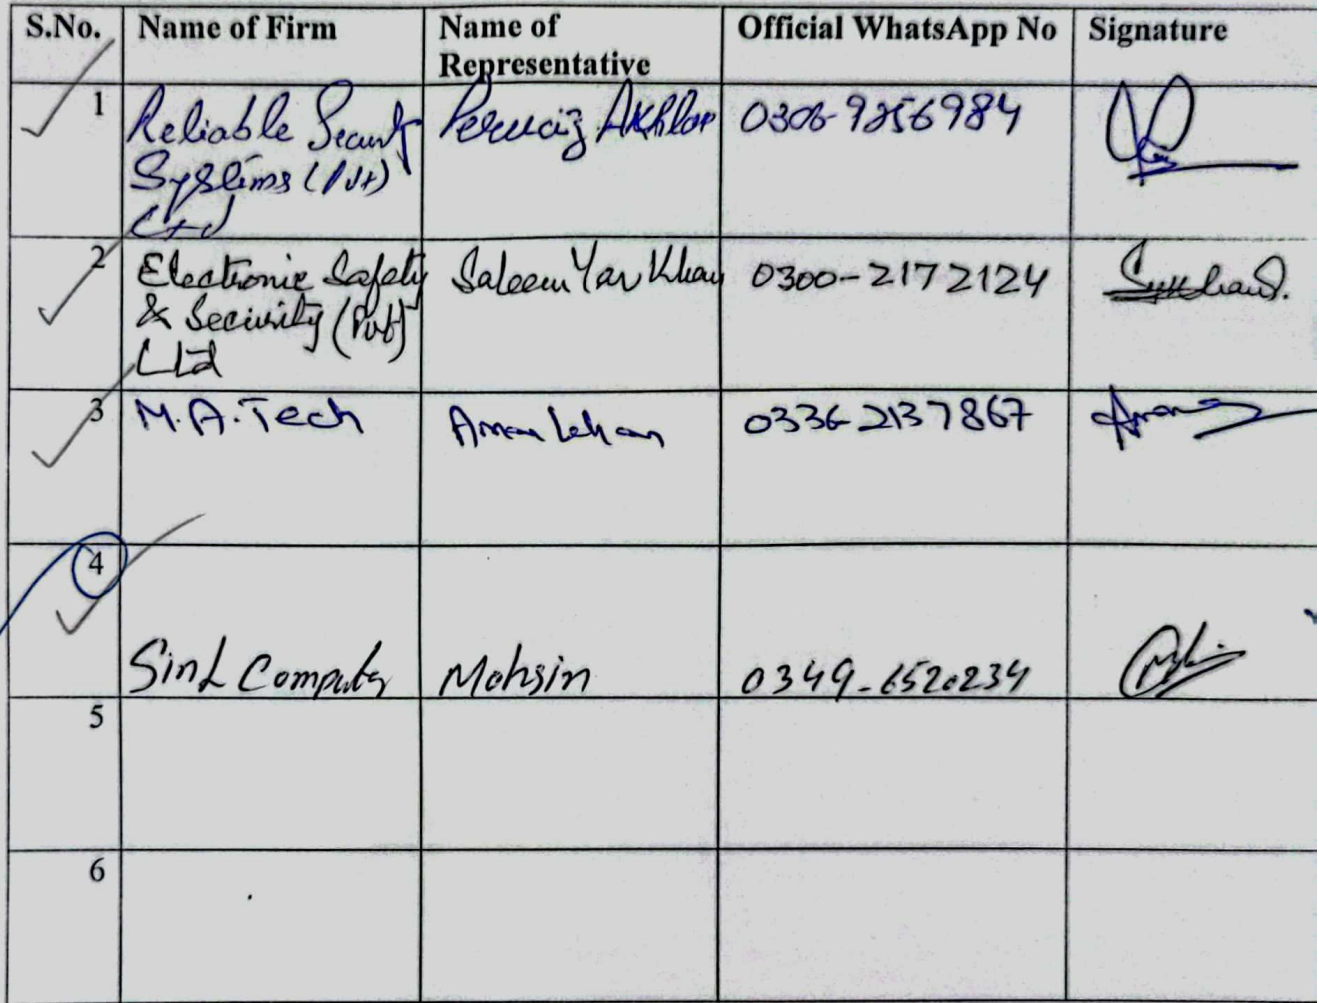 S.No. Name of Firm Name of Representative Official WhatsApp No Signature
1 Reliable Security Systems (Pvt) Ltd Pervaiz Akhtar 0306-9256984
2 Electronic Safety & Security (Pvt) Ltd Saleem Yar Khan 0300-2172124
3 M.A.Tech Aman khan 0336-2137867
4 Computer Mohsin 0349-6520234
5
6